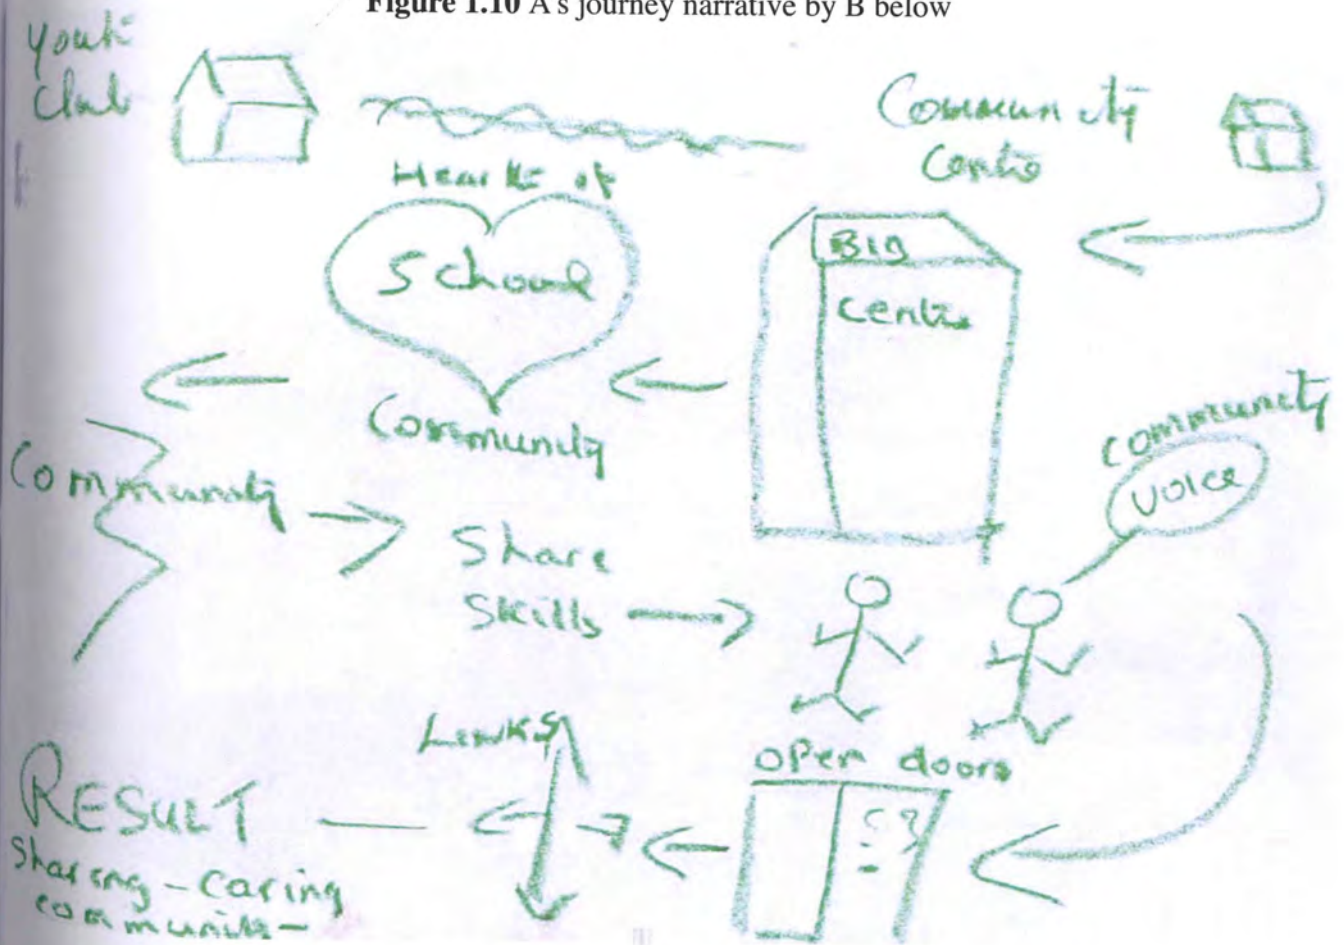 Figure 1.10 A's journey narrative by B below
Youth
Club
Community
Centre
Heart of
School
Community
BIG
centre
Community
Share
Skills
community
voice
Links
open doors
RESULT
sharing - caring
community -